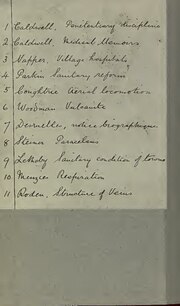 1 Caldwell, Penitentiary discipline
2 Caldwell Medical Honours
3 Napper, Village hospitals
4 Parkin Sanitary reform
5 Aerial locomotion
6 Woodman Vulcanite
7 Desruelles, notice biographique
8 Skeines Paracelsus
9 Letheby Sanitary condition of towns
10 Menzies Respiration
11 Boden, Structure of Veins